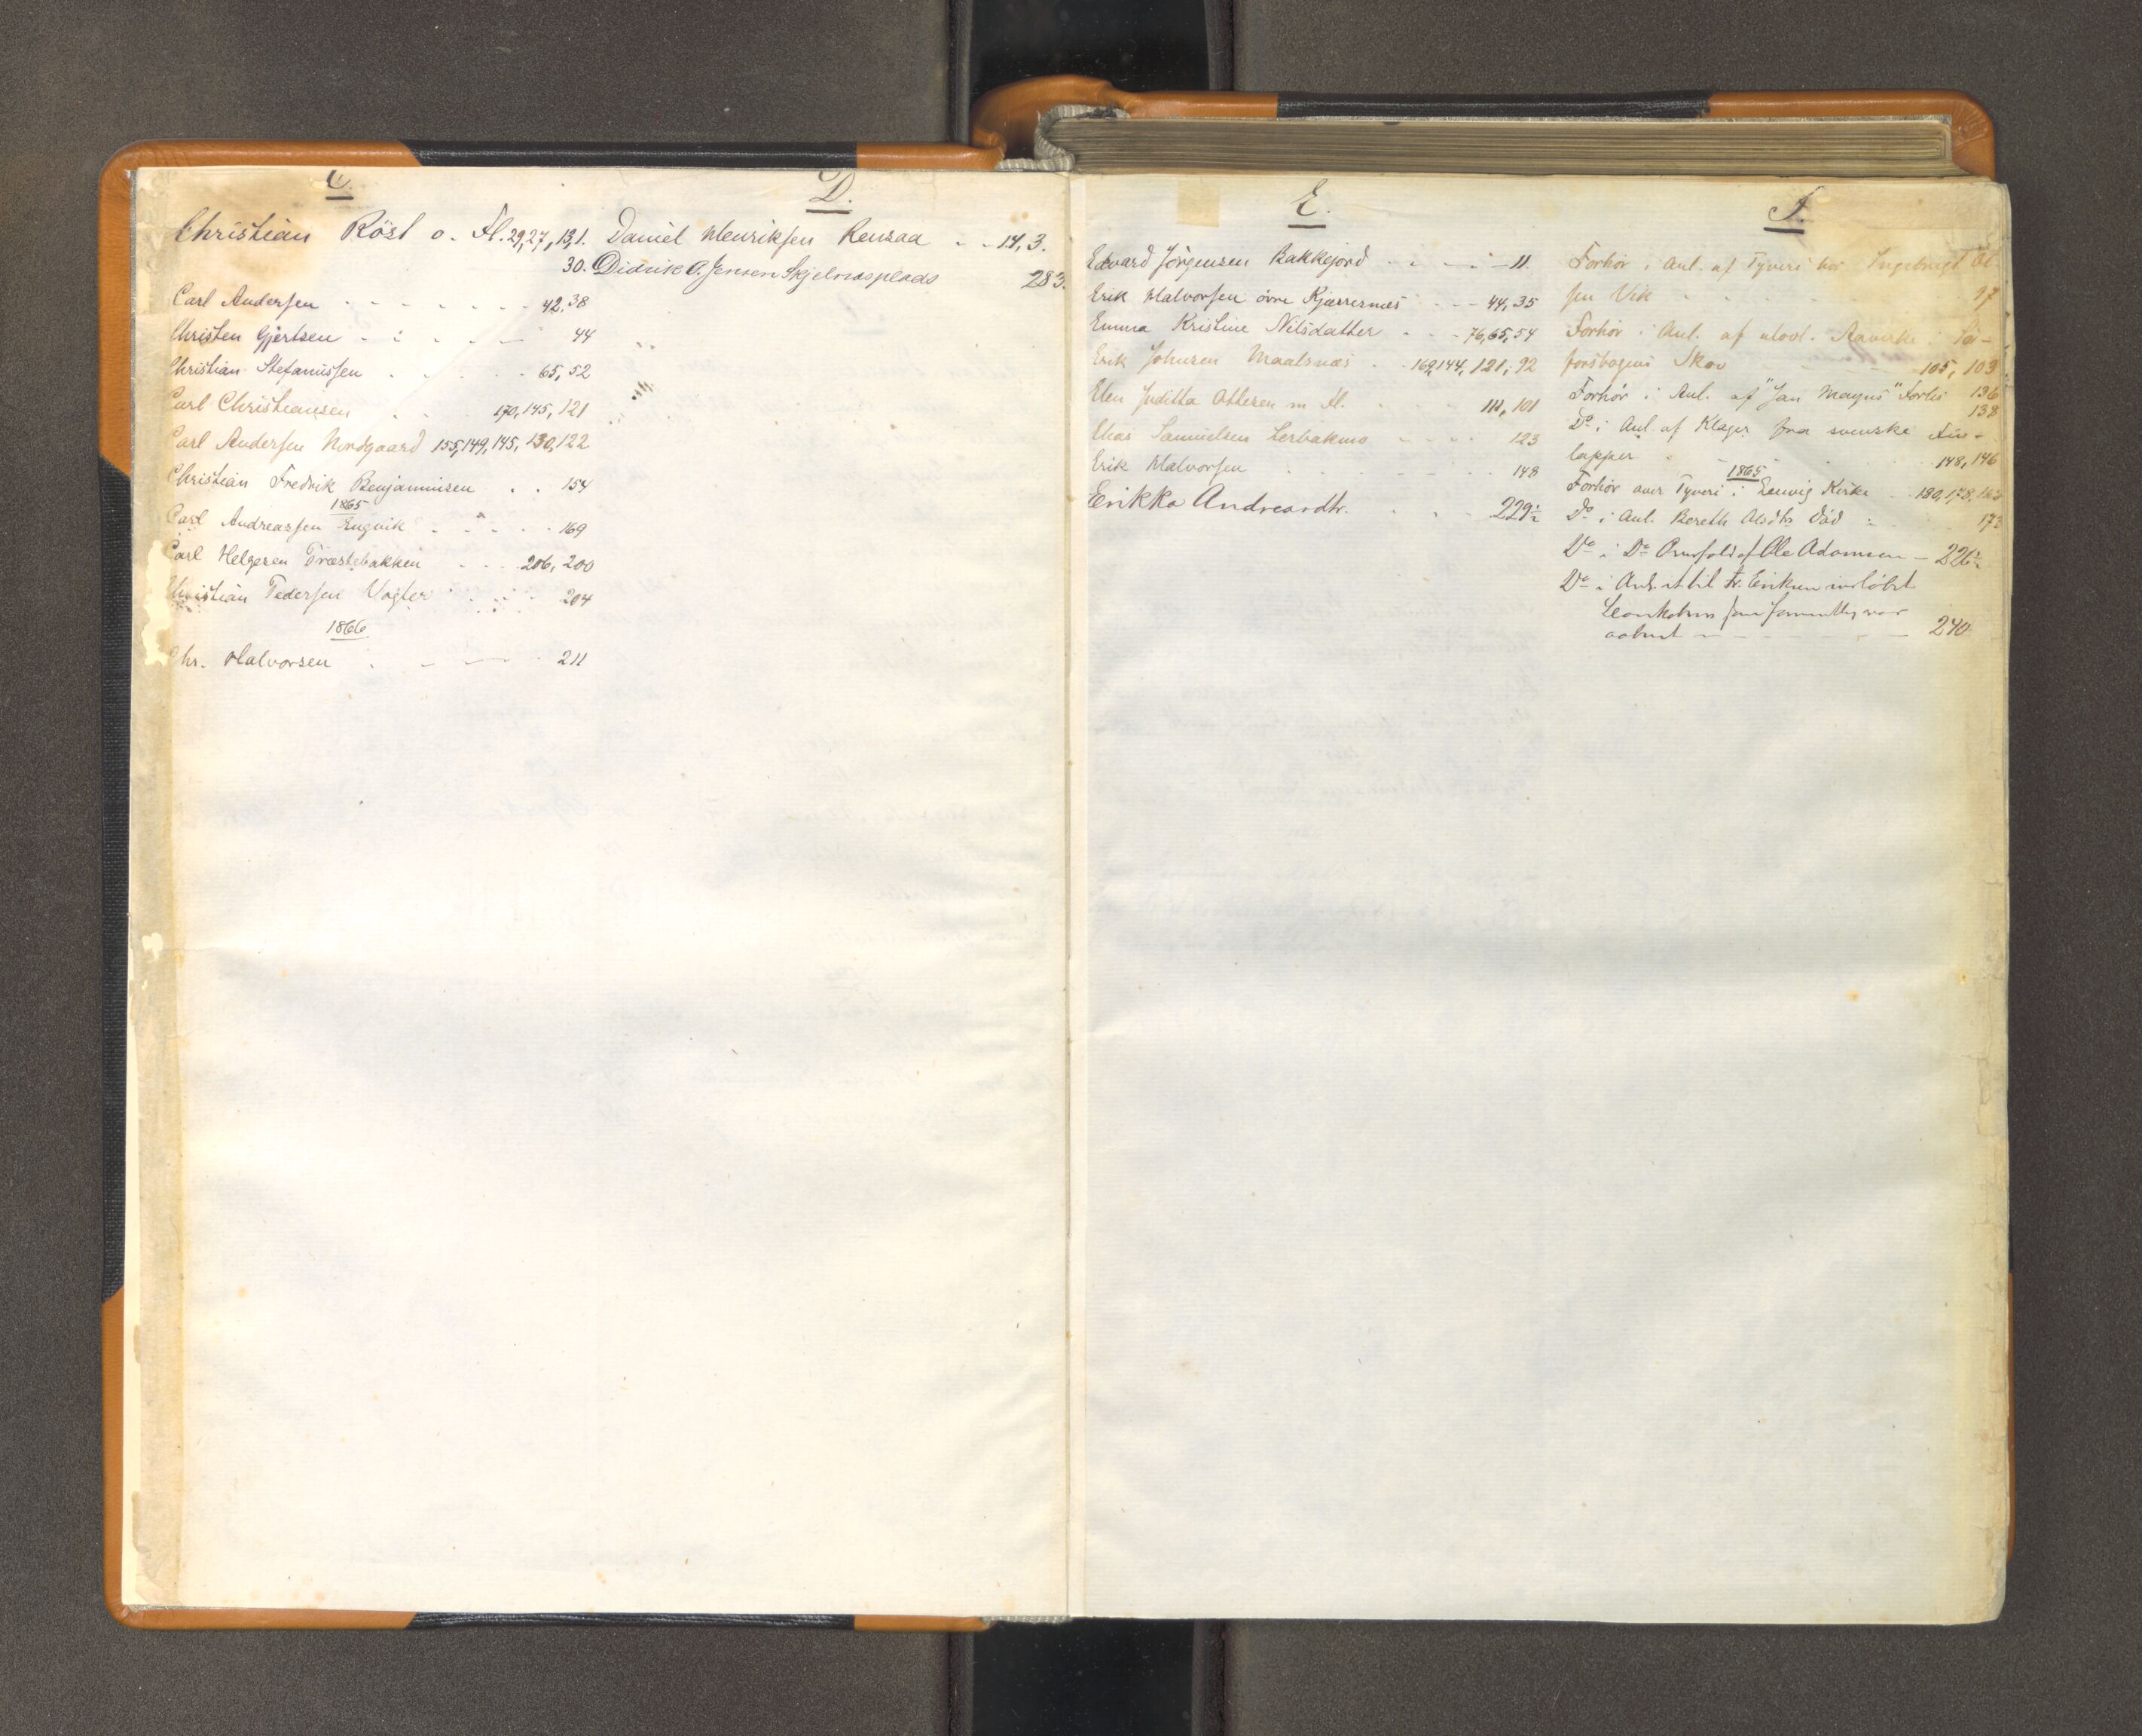 C.
Christian Röst o. Fl. 29, 27, 13, 1.
30.
Carl Andersen 42, 38
Christen Gjertsen 44
Christian Stefanussen 65, 52
Carl Christiansen 170, 145, 121
Carl Andersen Nordgaard 155, 149, 145, 130, 122
Christian Fredrik Benjaminsen 154
1865
Carl Andreassen Engvik 169
Carl Helgesen Præstebakken 206, 200
Christian Pedersen Vogter 204
1866
Chr. Halvorsen 211
D.
Daniel Henriksen Rensaa 14, 3.
Didrik A. Jensen Skjelnesplads 283.
E.
Edvard Jörgensen Bakkejord 11.
Erik Halvorsen övre Kjærresnæs 44, 35
Emma Kristine Nilsdatter 76, 65, 54
Erik Johnsen Maalsnæs 169, 144, 121, 92
Elen Juditta Ottesen m Fl. 111, 101
Elias Samuelsen Lerbakmo 123
Erik Halvorsen 148
Erikka Andreasdtr. 229½
F.
Forhör i Anl. af Tyveri hos Ingebrigt Ol
sen Vik 97
Forhör i Anl. af ulovl. Aavirke i
Skov 105, 103
Forhör i Anl. af "Jan Mayns" Forlis 136
138
Do i Anl. af Klager fra svenske
lapper 148, 146
1865
Forhör over Tyveri i Lenvig Kirke 180, 178,
Do i Anl. Bereth Olsdtr Död 173
Do i Do af Ole Adamsen 226½
Do i Eriksen
240